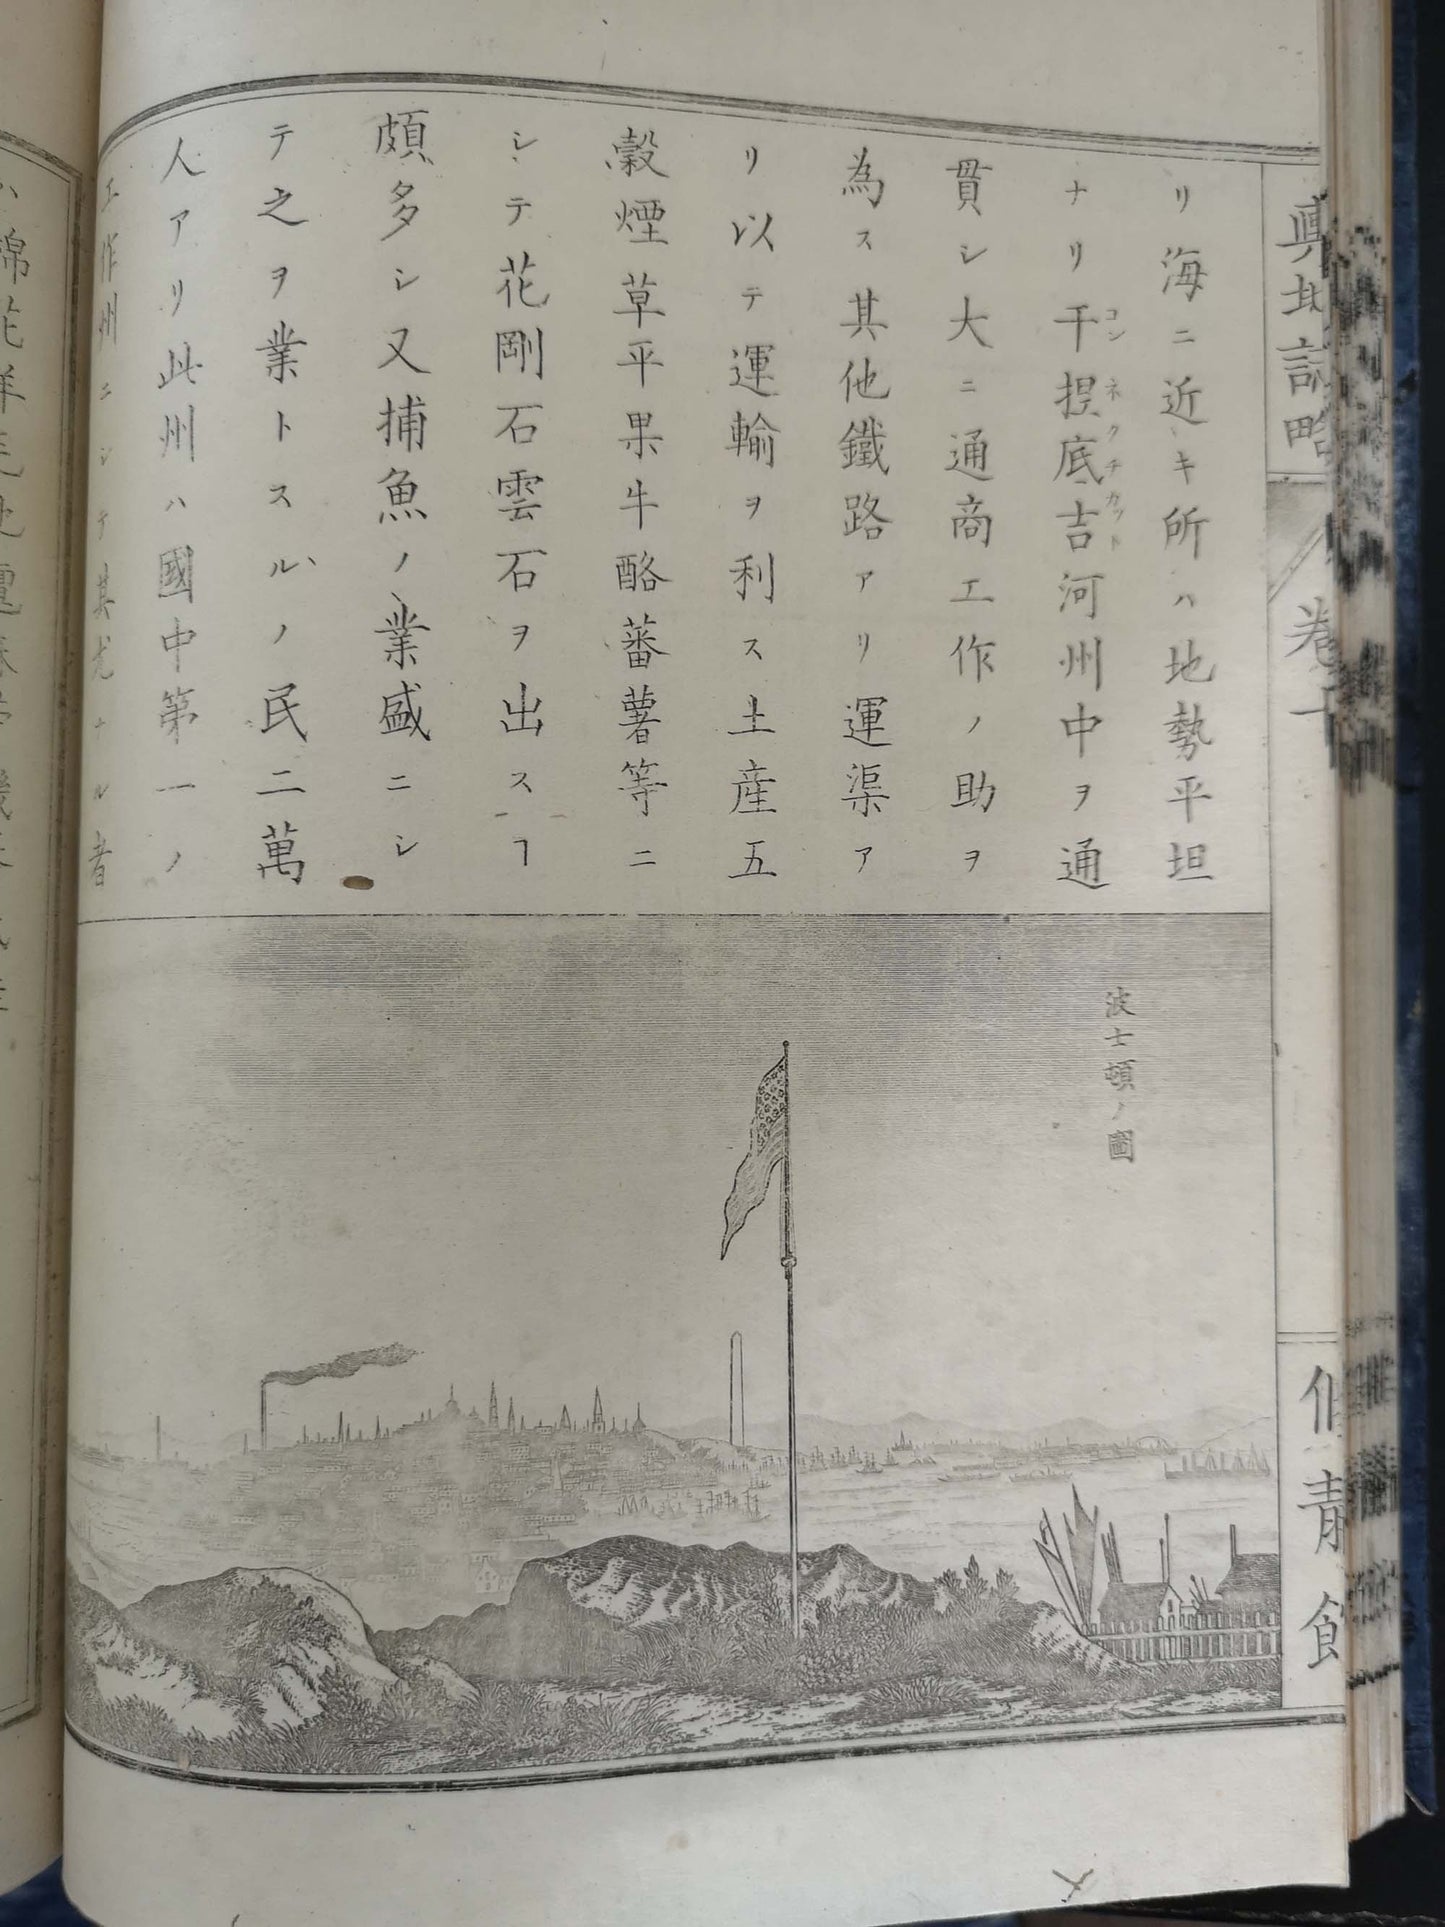 輿地誌略
卷十
修靜館
リ海ニ近キ所ハ地勢平坦
ナリ干捏底吉河州中ヲ通
コンネクチカット
貫シ大ニ通商工作ノ助ヲ
為ス其他鐵路アリ運渠ア
リ以テ運輸ヲ利ス土産五
穀煙草平果牛酪蕃薯等ニ
シテ花剛石雲石ヲ出スヿ
頗多シ又捕魚ノ業盛ニシ
テ之ヲ業トスルノ民二萬
人アリ此州ハ國中第一ノ
工作州ニシテ其尤ナル者
波士頓ノ圖
ハ綿花洋毛